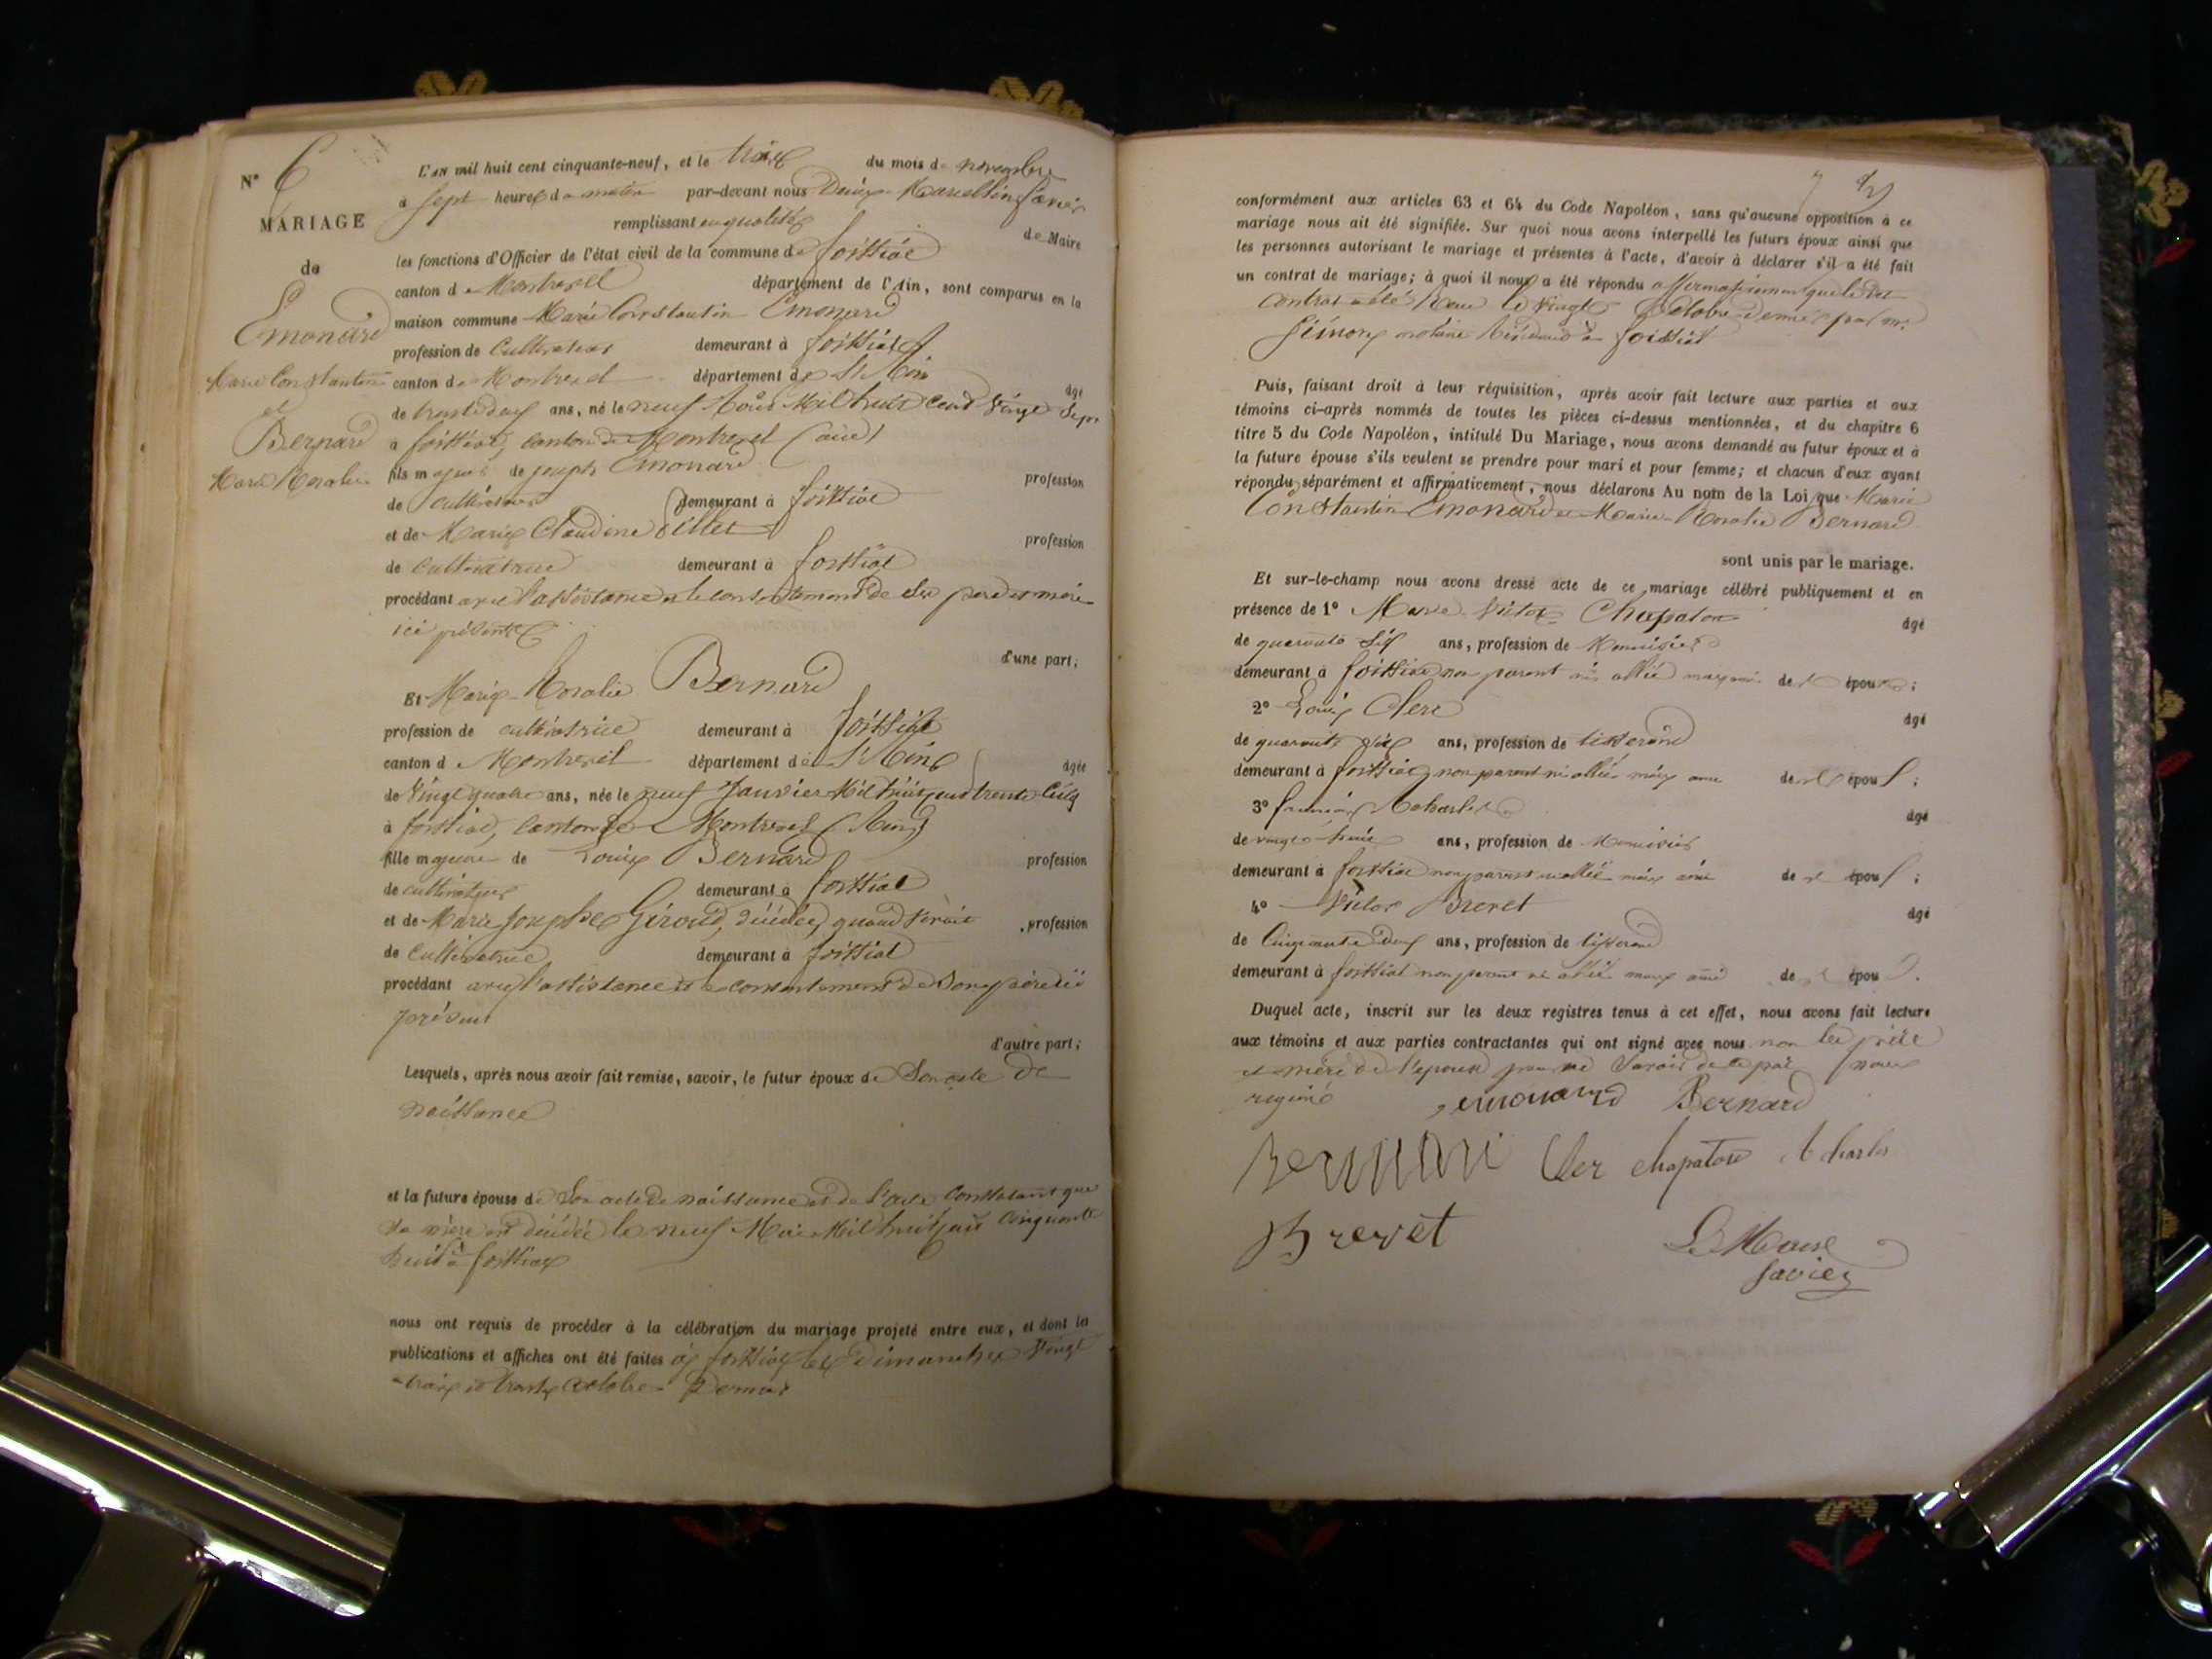 N° 6
MARIAGE
de
Emonard
Marie Constantin
et
Bernard
Marie Rosalie
L'AN mil huit cent cinquante-neuf, et le trois du mois de novembre
à sept heures du matin par-devant nous Denis Marcellin Favier
remplissant en qualité de Maire
les fonctions d'Officier de l'état civil de la commune de foissiat
canton de Montrevel département de l'Ain, sont comparus en la
maison commune Marie Constantin Emonard
profession de Cultivateur demeurant à foissiat
canton de Montrevel département de l'Ain âgé
de trente deux ans, né le neuf Août Mil huit Cent Vingt Sept
à foissiat, canton de Montrevel (ain)
fils majeur de joseph Emonard profession
de cultivateur demeurant à foissiat
et de Marie Claudine profession
de Cultivatrice demeurant à foissiat
procédant avec l'assistance et le consentement de ses père et mère
ici présents
d'une part;
Et Marie Rosalie Bernard
profession de cultivatrice demeurant à foissiat
canton de Montrevel département de l'Ain âgée
de Vingt quatre ans, née le neuf Janvier Mil huit cent trente Cinq
à foissiat, canton de Montrevel (Ain)
fille majeure de Louis Bernard profession
de cultivateur demeurant à foissiat
et de Marie Josephte Giroud, décédée, quand vivait profession
de Cultivatrice demeurant à foissiat
procédant avec l'assistance et le consentement de son père ici
présent
d'autre part;
Lesquels, après nous avoir fait remise, savoir, le futur époux de Son acte de
naissance
et la future épouse de Son acte de naissance et de l'acte Constatant que
sa mère est décédée le neuf Mai Mil huit cent Cinquante
huit à foissiat
nous ont requis de procéder à la célébration du mariage projeté entre eux, et dont les
publications et affiches ont été faites à foissiat les Dimanches Vingt
trois et trente octobre Dernier
conformément aux articles 63 et 64 du Code Napoléon, sans qu'aucune opposition à ce
mariage nous ait été signifiée. Sur quoi nous avons interpellé les futurs époux ainsi que
les personnes autorisant le mariage et présentes à l'acte, d'avoir à déclarer s'il a été fait
un contrat de mariage; à quoi il nous a été répondu affirmativement que le dit
Contrat a été le Vingt Octobre Dernier par me
notaire Résident à foissiat
Puis, faisant droit à leur réquisition, après avoir fait lecture aux parties et aux
témoins ci-après nommés de toutes les pièces ci-dessus mentionnées, et du chapitre 6
titre 5 du Code Napoléon, intitulé Du Mariage, nous avons demandé au futur époux et à
la future épouse s'ils veulent se prendre pour mari et pour femme; et chacun d'eux ayant
répondu séparément et affirmativement, nous déclarons Au nom de la Loi que Marie
Constantin Emonard et Marie Rosalie Bernard
sont unis par le mariage.
Et sur-le-champ nous avons dressé acte de ce mariage célébré publiquement et en
présence de 1° Marie Victor Chapaton âgé
de quarante six ans, profession de Menuisier
demeurant à foissiat non parent ni allié mais ami des époux;
2° Louis Clerc âgé
de quarante six ans, profession de tisserand
demeurant à foissiat non parent ni allié mais ami des époux;
3° âgé
de vingt huit ans, profession de Menuisier
demeurant à foissiat non parent ni allié mais ami des époux;
4° Victor Brevet âgé
de Cinquante Deux ans, profession de tisserand
demeurant à foissiat non parent ni allié mais ami des époux.
Duquel acte, inscrit sur les deux registres tenus à cet effet, nous avons fait lecture
aux témoins et aux parties contractantes qui ont signé avec nous non les père
et mère de l'époux pour ne savoir de ce par nous
requis
emonard Bernard
Bernard Cler chapaton
Brevet
Le Maire
Favier